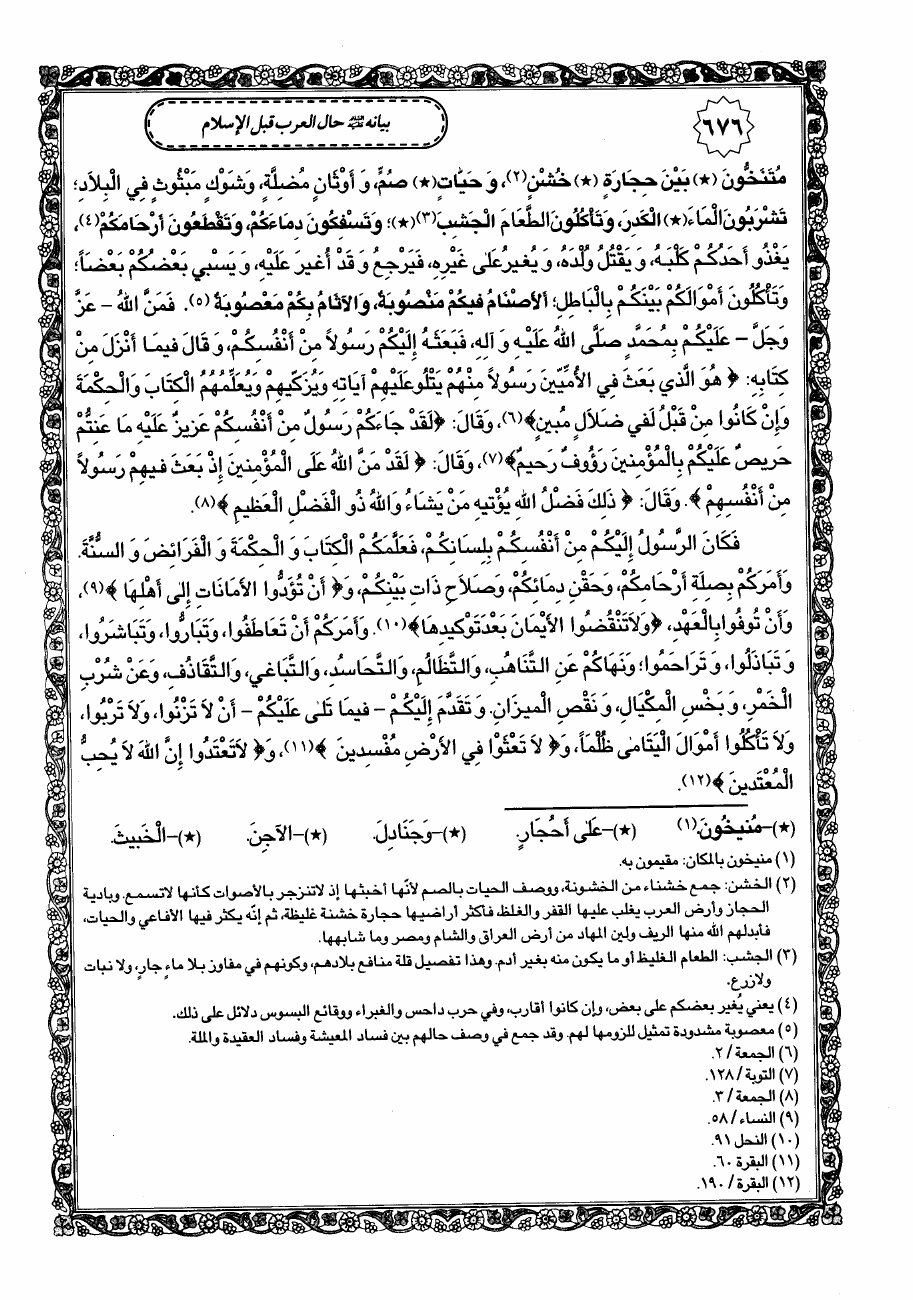 ٦٧٦
بيانه عليه السلام حال العرب قبل الإسلام
مُتَنَخُّونَ (★) بَيْنَ حِجَارَةٍ (★) خُشْنٍ(٢)، وَ حَيَّاتٍ(★) صُمٍّ، وَ أَوْثَانٍ مُضِلَّةٍ، وَشَوْكٍ مَبْثُوثٍ فِي الْبِلاَدِ؛
تَشْرَبُونَ الْمَاءَ(★) الْكَدِرَ، وَتَأْكُلُونَ الطَّعَامَ الْجَشْبَ(٣)(★)؛ وَتَسْفِكُونَ دِمَاءَكُمْ، وَتَقْطَعُونَ أَرْحَامَكُمْ(٤)،
يَغْذُو أَحَدُكُمْ كَلْبَهُ، وَ يَقْتُلُ وُلْدَهُ، وَ يُغيرُ عَلى غَيْرِهِ، فَيَرْجِعُ وَ قَدْ أُغيرَ عَلَيْهِ، وَ يَسْبي بَعْضُكُمْ بَعْضاً؛
وَتَأْكُلُونَ أَمْوَالَكُمْ بَيْنَكُمْ بِالْبَاطِلِ؛ اَلأَصْنَامُ فيكُمْ مَنْصُوبَةٌ، وَالآثَامُ بِكُمْ مَعْصُوبَةٌ (٥). فَمَنَّ اللهُ – عَزَّ
وَجَلَّ – عَلَيْكُمْ بِمُحَمَّدٍ صَلَّى اللهُ عَلَيْهِ وَ آلِهِ، فَبَعَثَهُ إِلَيْكُمْ رَسُولاً مِنْ أَنْفُسِكُمْ، وَ قَالَ فيمَا أَنْزَلَ مِنْ
كِتَابِهِ: ﴿ هُوَ الَّذي بَعَثَ فِي الأُمِّيّينَ رَسُولاً مِنْهُمْ يَتْلُو عَلَيْهِمْ آيَاتِهِ وَيُزَكّيهِمْ وَيُعَلِّمُهُمُ الْكِتَابَ وَالْحِكْمَةَ
وَإِنْ كَانُوا مِنْ قَبْلُ لَفي ضَلاَلٍ مُبينٍ﴾(٦)، وَقَالَ: ﴿لَقَدْ جَاءَكُمْ رَسُولٌ مِنْ أَنْفُسِكُمْ عَزيزٌ عَلَيْهِ مَا عَنِتُّمْ
حَريصٌ عَلَيْكُمْ بِالْمُؤْمِنينَ رَؤُوفٌ رَحيمٌ﴾(٧)، وَقَالَ: ﴿ لَقَدْ مَنَّ اللهُ عَلَى الْمُؤْمِنينَ إِذْ بَعَثَ فيهِمْ رَسُولاً
مِنْ أَنْفُسِهِمْ ﴾. وَقَالَ: ﴿ ذلِكَ فَضْلُ اللهِ يُؤْتيهِ مَنْ يَشَاءُ وَاللهُ ذُو الْفَضْلِ الْعَظيمِ ﴾(٨).
فَكَانَ الرَّسُولُ إِلَيْكُمْ مِنْ أَنْفُسِكُمْ بِلِسَانِكُمْ، فَعَلَّمَكُمُ الْكِتَابَ وَ الْحِكْمَةَ وَ الْفَرَائِضَ وَ السُّنَّةَ.
وَأَمَرَكُمْ بِصِلَةِ أَرْحَامِكُمْ، وَحَقْنِ دِمَائِكُمْ، وَصَلاَحِ ذَاتِ بَيْنِكُمْ، وَ﴿ أَنْ تُؤَدُّوا الأَمَانَاتِ إِلى أَهْلِهَا ﴾(٩)،
وَأَنْ تُوفُوا بِالْعَهْدِ، ﴿وَلاَتَنْقُضُوا الأَيْمَانَ بَعْدَ تَوْكيدِهَا﴾(١٠). وَأَمَرَكُمْ أَنْ تَعَاطَفُوا، وَتَبَارُّوا، وَتَبَاشَرُوا،
وَ تَبَاذَلُوا، وَ تَرَاحَمُوا؛ وَنَهَاكُمْ عَنِ التَّنَاهُبِ، وَالتَّظَالُمِ، وَالتَّحَاسُدِ، وَالتَّبَاغي، وَالتَّقَاذُفِ، وَعَنْ شُرْبِ
الْخَمْرِ، وَ بَخْسِ الْمِكْيَالِ، وَ نَقْصِ الْميزَانِ. وَ تَقَدَّمَ إِلَيْكُمْ – فيمَا تَلى عَلَيْكُمْ – أَنْ لاَ تَزْنُوا، وَلاَ تَرْبُوا،
وَلاَ تَأْكُلُوا أَمْوَالَ الْيَتَامى ظُلْماً، وَ﴿ لاَ تَعْثَوْا فِي الأَرْضِ مُفْسِدينَ ﴾(١١)، وَ﴿ لاَتَعْتَدُوا إِنَّ اللهَ لاَ يُحِبُّ
الْمُعْتَدينَ ﴾(١٢).
(★)–مُنيخُونَ.(١) (★)–عَلى أَحْجَارٍ. (★)–وَجَنَادِلَ. (★)–الآجِنَ. (★)–الْخَبيثَ.
(١) منيخون بالمكان: مقيمون به.
(٢) الخشن: جمع خشناء من الخشونة، ووصف الحيات بالصم لأنّها أخبثها إذ لاتنزجر بالأصوات كأنها لاتسمع. وبادية
الحجاز وأرض العرب يغلب عليها القفر والغلظ، فأكثر أراضيها حجارة خشنة غليظة، ثم إنّه يكثر فيها الأفاعي والحيات،
فأبدلهم الله منها الريف ولين المهاد من أرض العراق والشام ومصر وما شابهها.
(٣) الجشب: الطعام الغليظ أو ما يكون منه بغير أدم. وهذا تفصيل قلة منافع بلادهم، وكونهم في مفاوز بلا ماءٍ جارٍ، ولا نبات
ولازرع.
(٤) يعني يُغير بعضكم على بعض، وإن كانوا أقارب، وفي حرب داحس والغبراء ووقائع البسوس دلائل على ذلك.
(٥) معصوبة مشدودة تمثيل للزومها لهم. وقد جمع في وصف حالهم بين فساد المعيشة وفساد العقيدة والملة.
(٦) الجمعة / ٢.
(٧) التوبة / ١٢٨.
(٨) الجمعة / ٣.
(٩) النساء / ٥٨.
(١٠) النحل ٩١.
(١١) البقرة ٦٠.
(١٢) البقرة / ١٩٠.